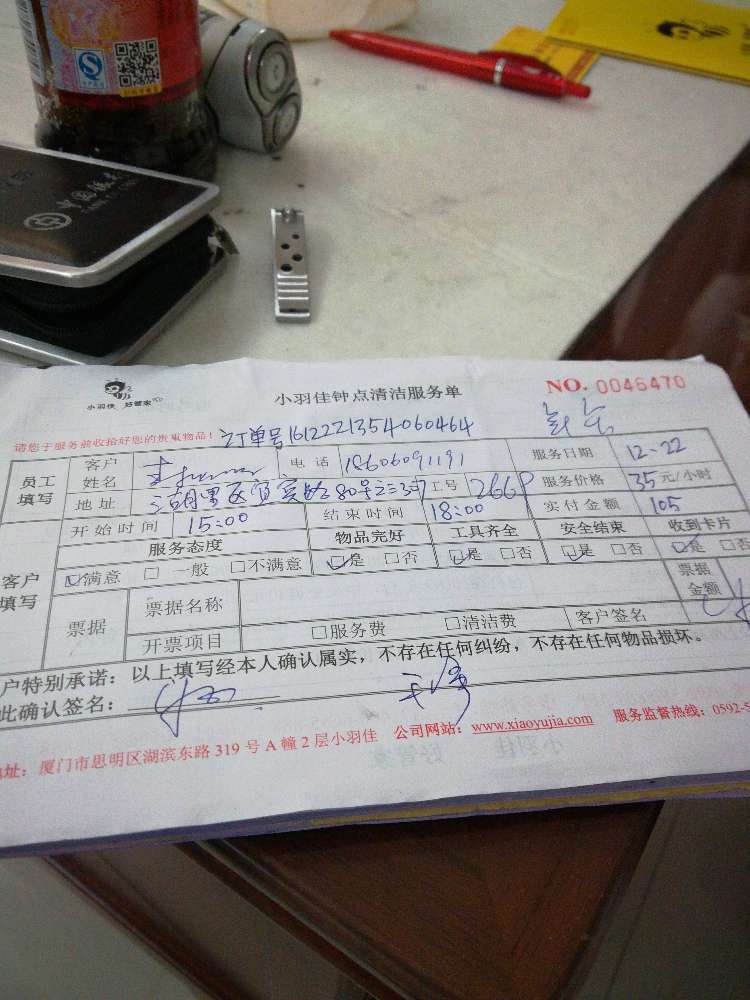 中国银行
小羽佳 好管家
小羽佳钟点清洁服务单
NO. 0046470
请您于服务前收拾好您的贵重物品！
订单号1612221354060464
员工填写
客户姓名
电话 18606091191
服务日期 12-22
地址
80号
工号 2669
服务价格 35元/小时
开始时间 15:00 结束时间 18:00 实付金额 105
客户填写
服务态度 物品完好 工具齐全 安全结束 收到卡片
满意 一般 不满意 是 否 是 否 是 否 是 否
票据 票据名称 票据金额
开票项目 服务费 清洁费 客户签名
户特别承诺：以上填写经本人确认属实，不存在任何纠纷，不存在任何物品损坏。
此确认签名：
地址：厦门市思明区湖滨东路 319 号 A 幢 2 层小羽佳 公司网站：www.xiaoyujia.com 服务监督热线：0592-5